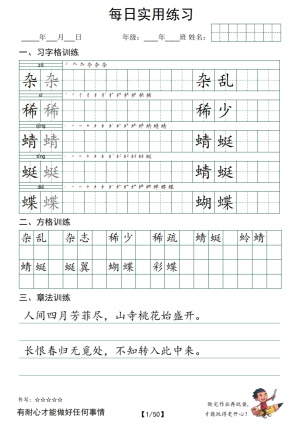 每日实用练习
____年___月___日 年级:___年___班 姓名:
一、习字格训练
zá
杂 杂 杂 乱
xī
稀 稀 稀 少
qīng
蜻 蜻 蜻 蜓
tíng
蜓 蜓 蜻 蜓
dié
蝶 蝶 蝴 蝶
二、方格训练
杂乱 杂志 稀少 稀疏 蜻蜓 蛉蜻
蜻蜓 蜓翼 蝴蝶 彩蝶
三、章法训练
人间四月芳菲尽,山寺桃花始盛开。
长恨春归无觅处,不知转入此中来。
书写:☆☆☆☆☆
有耐心才能做好任何事情
【1/50】
做完作业再玩耍,
才能玩得更开心!